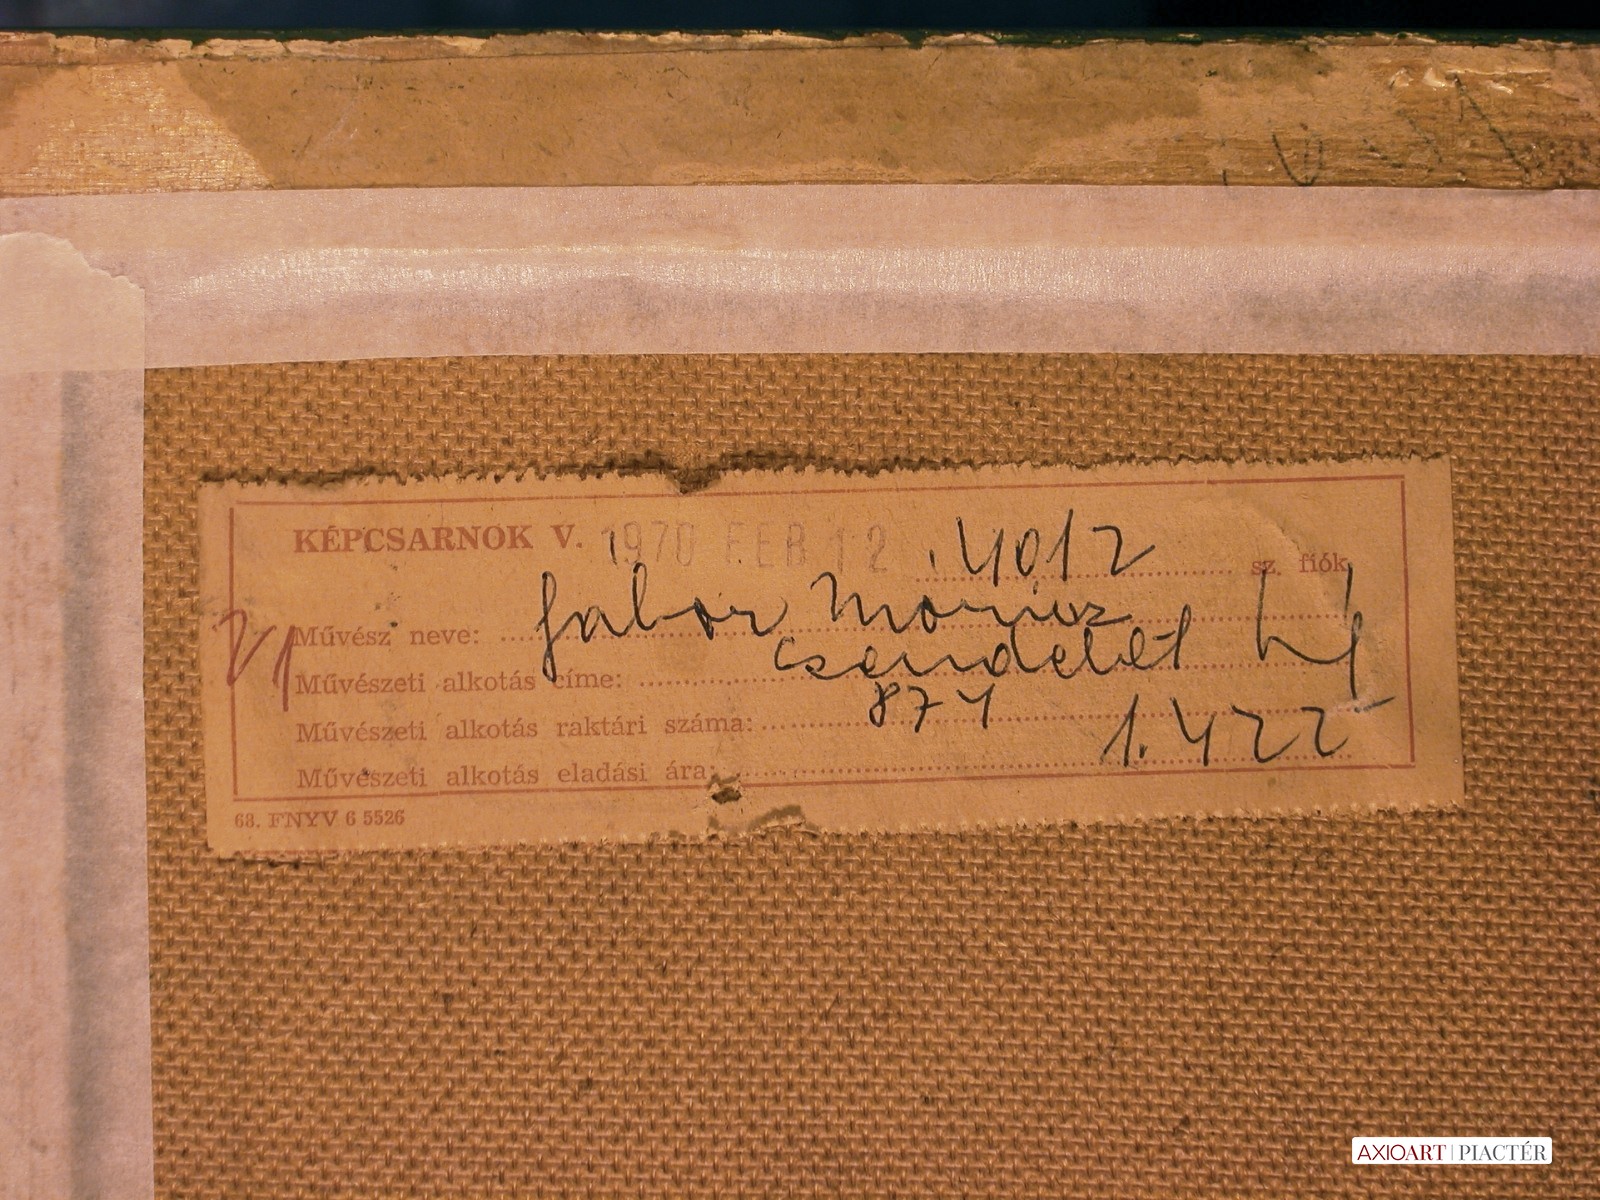 KÉPCSARNOK V. 1970 FEB 12 4012 sz. fiók
Művész neve: Gabor Moricz
Művészeti alkotás címe: Csendelet
Művészeti alkotás raktári száma: 874
Művészeti alkotás eladási ára: 1.422
68. FNYV 6 5526
21
AXIOART | PIACTÉR